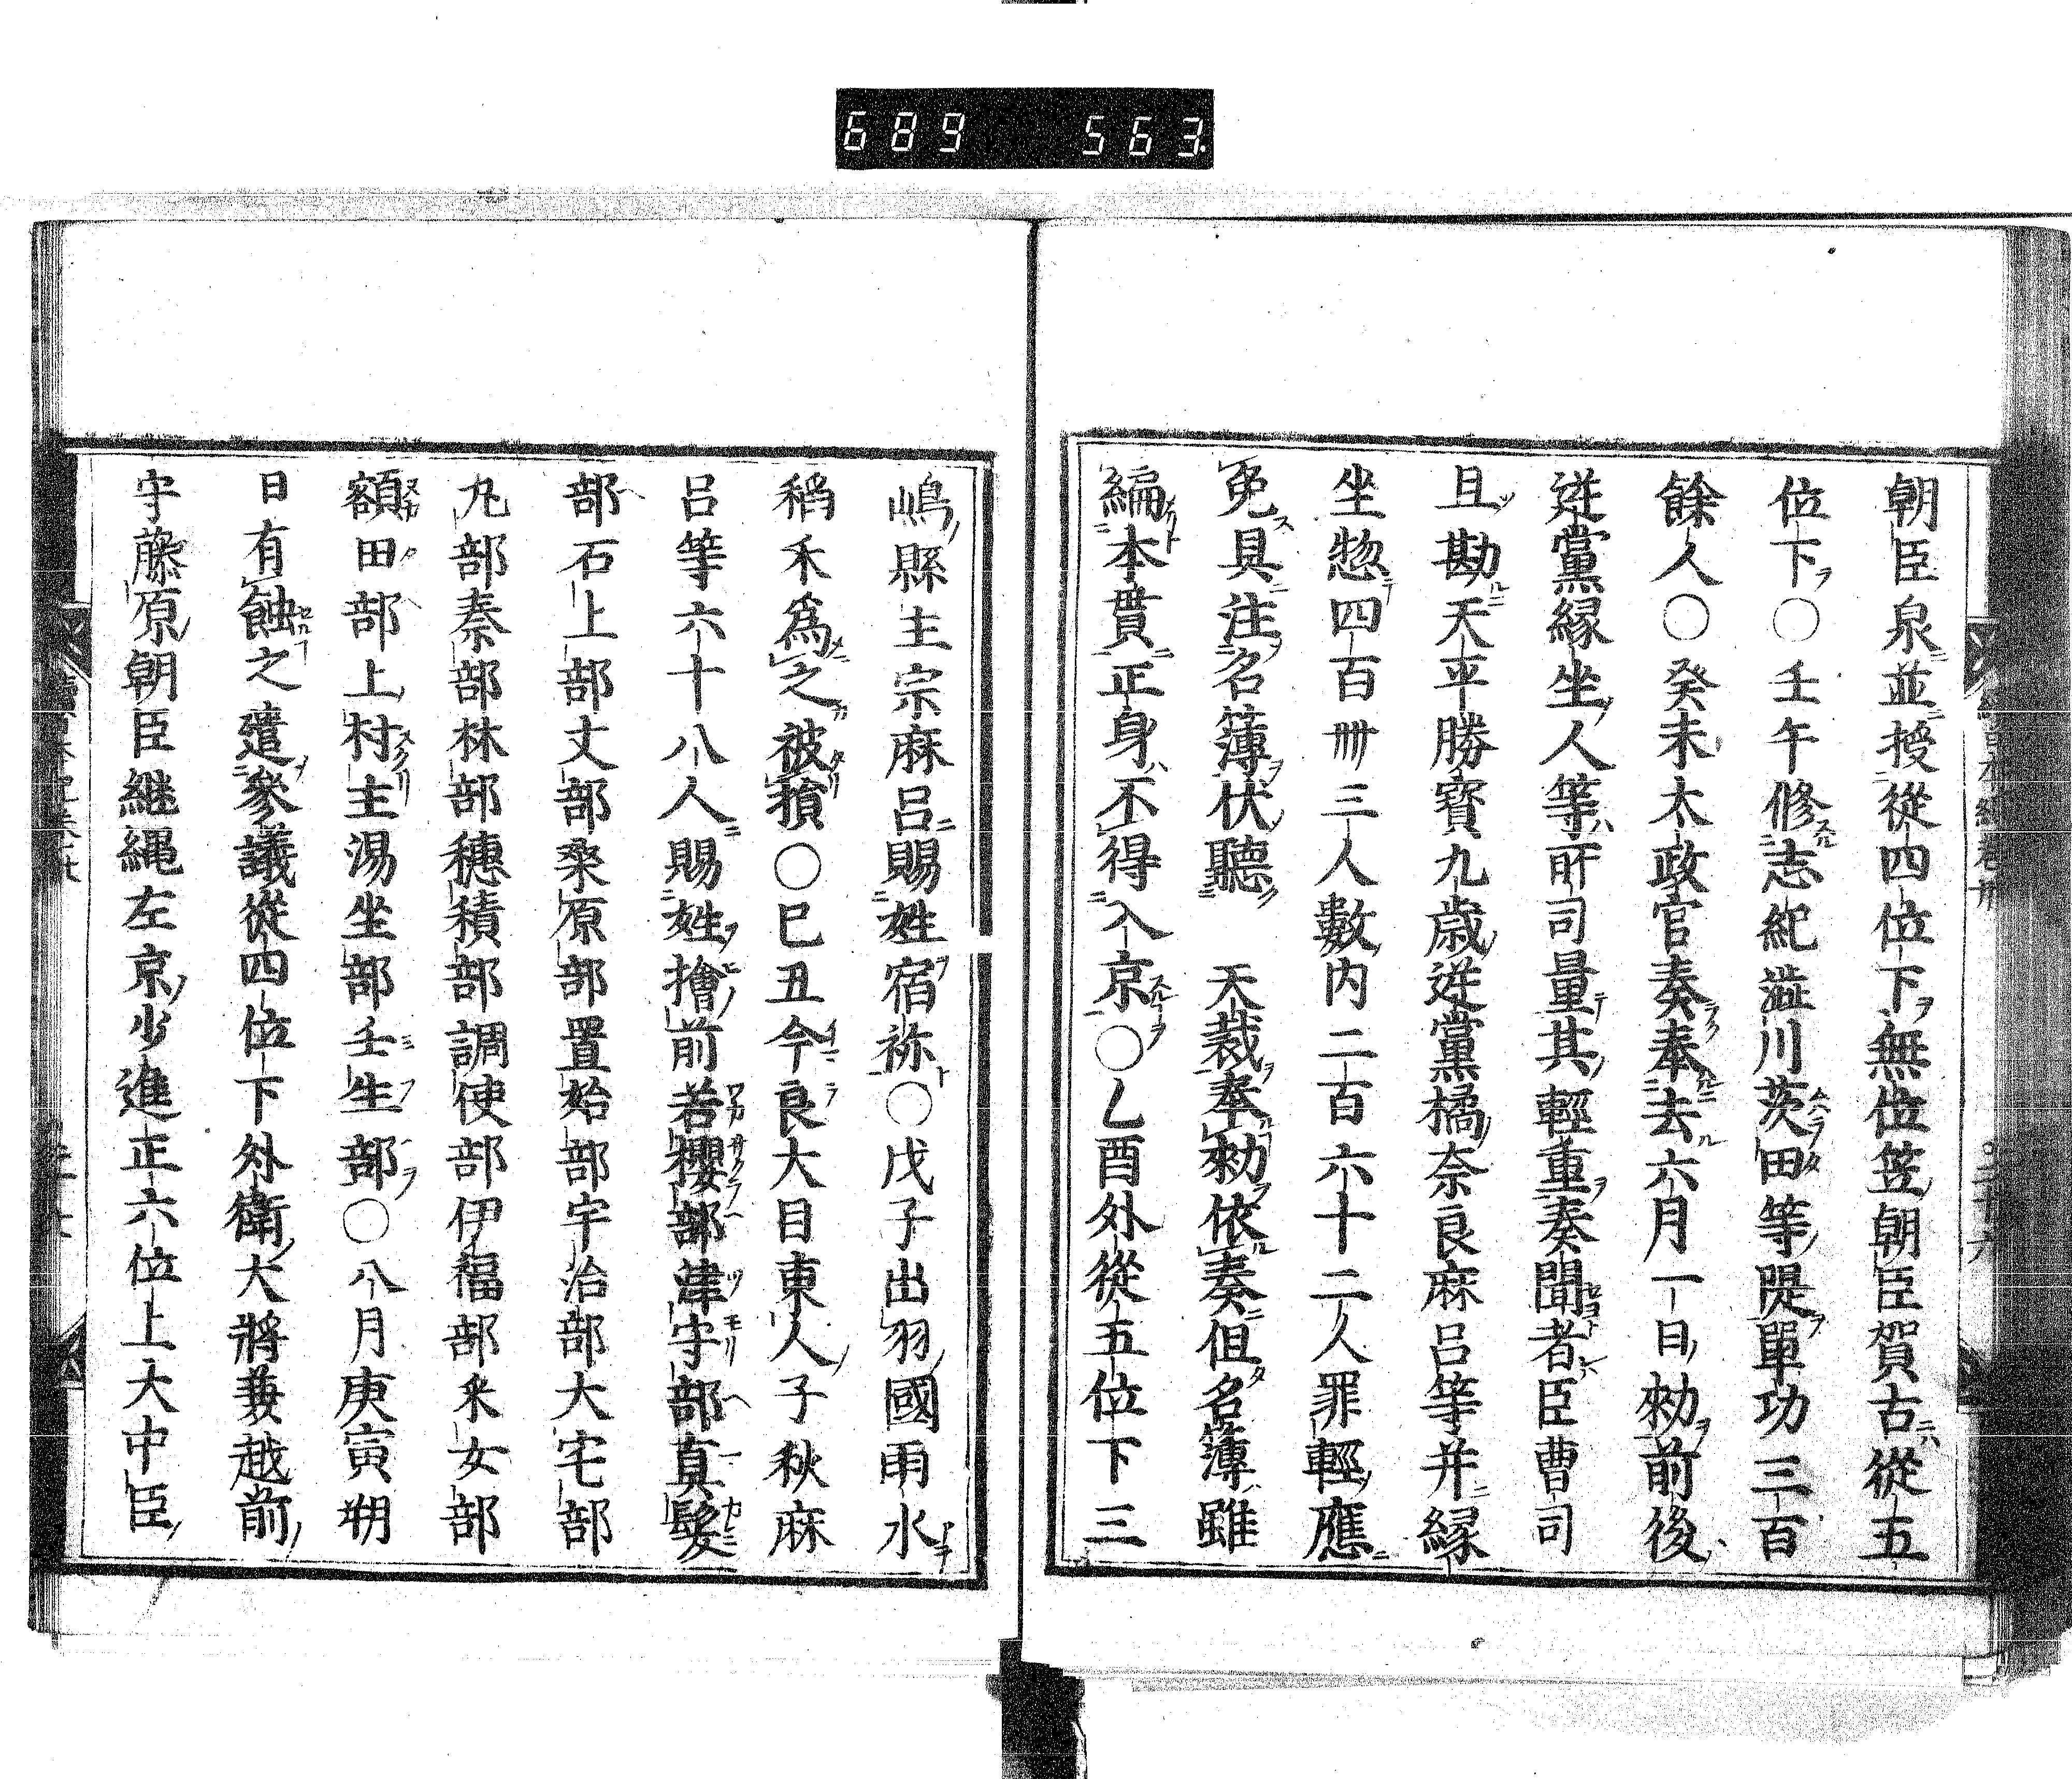 689 563
朝臣泉並授從四位下無位笠朝臣賀古從五
位下○壬午修志紀澁川茨田等隄單功三百
餘人○癸未太政官奏奉去六月一日勑前後
逆黨縁坐人等所司量其輕重奏聞者臣曹司
且勘天平勝寶九歳逆黨橘奈良麻呂等并縁
坐惣四百卌三人數内二百六十二人罪輕應
免具注名簿伏聽 天裁奉勑依奏但名簿雖
編本貫正身不得入京○乙酉外從五位下三
嶋縣主宗麻呂賜姓宿祢○戊子出羽國雨水
稻禾爲之被損○巳丑今良大目東人子秋麻
呂等六十八人賜姓檜前若櫻部津守部真髪
部石上部丈部桒原部置始部宇治部大宅部
丸部秦部林部穗積部調使部伊福部采女部
額田部上村主湯坐部壬生部○八月庚寅朔
日有蝕之遣參議從四位下外衛大將兼越前
守藤原朝臣継縄左京少進正六位上大中臣